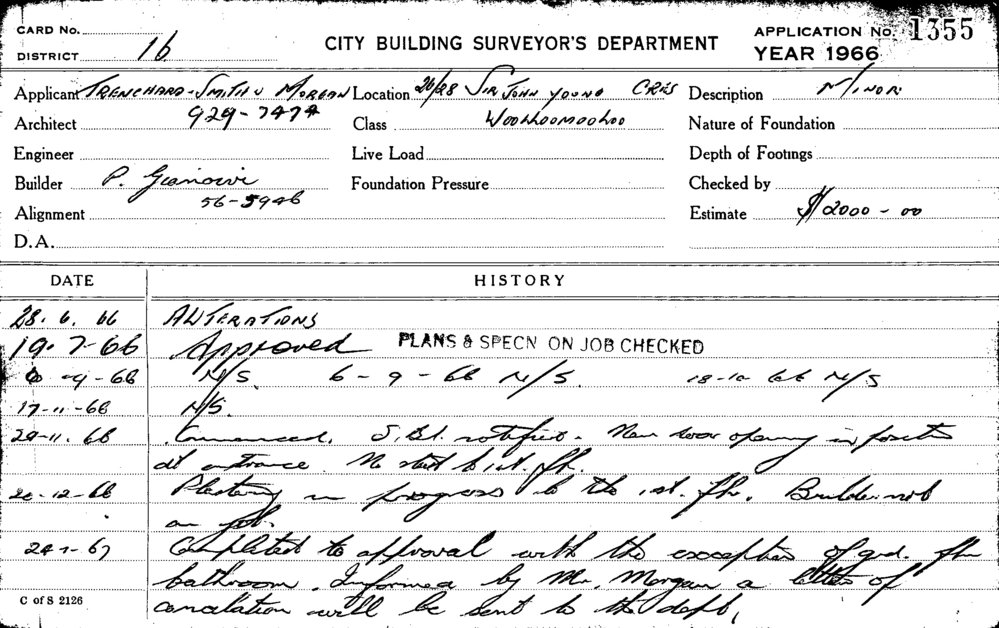 CARD No.
DISTRICT 16
CITY BUILDING SURVEYOR'S DEPARTMENT
APPLICATION No. 1355
YEAR 1966
Applicant TRENCHARD-SMITH & MORGAN
Location 26/28 SIR JOHN YOUNG CRES
Description MINOR
Architect 929-7474
Class WOOLLOOMOOLOO
Nature of Foundation
Engineer
Live Load
Depth of Footings
Builder P.
Foundation Pressure
Checked by
56-5946
Alignment
Estimate $2000-00
D.A.
DATE HISTORY
28.6.66 ALTERATIONS
19-7-66 Approved PLANS & SPECN ON JOB CHECKED
6-9-66 N/S. 6-9-66 N/S. 18-10-66 N/S
17-11-66 N/S.
29-11.66 Commenced. notified. New door opening in
at entrance. No start to 1st. flr.
20-12-66 Plastering in progress to the 1st. flr. Builder not
on job.
24-1-67 Completed to approval with the exception of grd. flr
bathroom. Informed by Mr. Morgan a letter of
cancelation will be sent to the dept,
C of S 2126